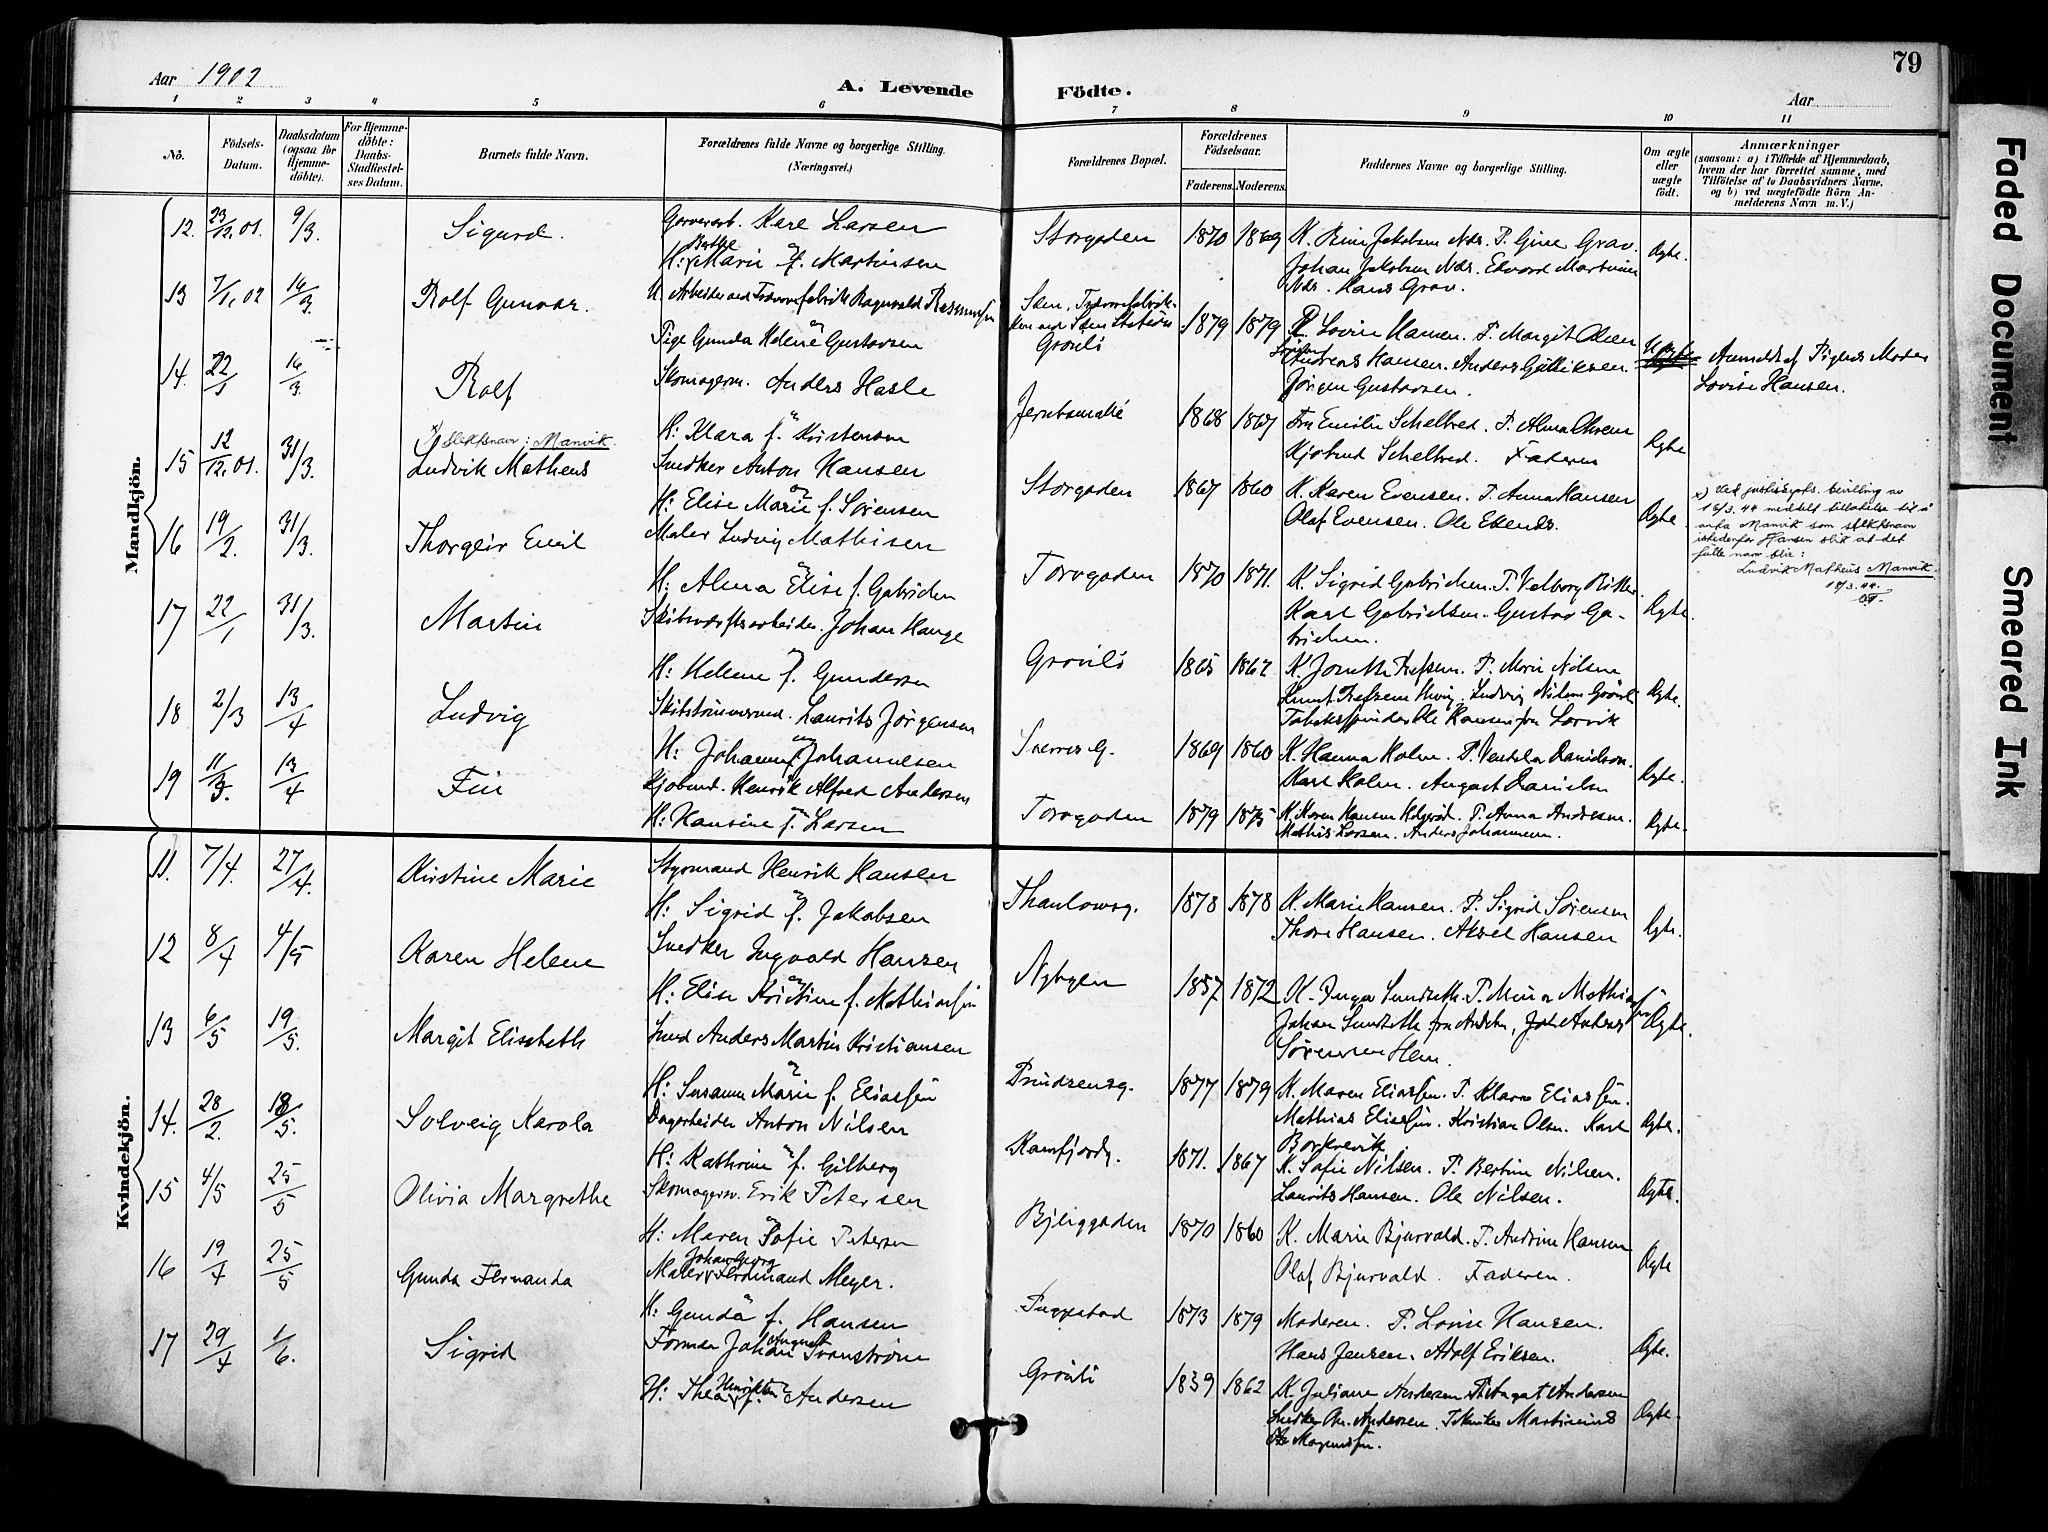 79
Aar 1902
A. Levende Födte.
Aar
1 2 3 4 5 6 7 8 9 10 11
No.
Födsels-Datum.
Daabsdatum (ogsaa for Hjemme-döbte).
For Hjemme-döbte: Daabs-Stadfæstel-ses Datum.
Barnets fulde Navn.
Forældrenes fulde Navne og borgerlige Stilling. (Næringsvei.)
Forældrenes Bopæl.
Forældrenes Födselsaar.
Faderens. Moderens.
Faddernes Navne og borgerlige Stilling.
Om ægte eller uægte født.
Anmærkninger
(saasom: a) i Tilfælde af Hjemmedaab, hvem der har forrettet samme, med Tilföielse af to Daabsvidners Navne, og b) ved uægtefödte Börn An-melderens Navn m. V.)
Mandkjön.
12. 23/12.01. 9/3. Sigurd. Garverarb. Karl Larsen
H: Berthe Marie f. Martinsen
Storgaden 1870 1869
Johan Jakobsen Ndr. Edvard Martinsen
Ndr. Hans Grav.
Ægte.
13 7/1.02 16/3 Rolf Gunvar.
Pige Gunda Helene Gustavsen
Grønli 1879 1879 Lovise Hansen. P. Margit Olsen
Andreas Hansen. Anders Gulliksen.
Jørgen Gustavsen.
Uægte Anmeldt af Pigens Moder
Lovise Hansen.
14. 22/1 16/3. Rolf Skomagerm. Anders Hasle
H: Klara f. Kristensen
1868 1867 Fru Emilie Schelbred. P. Alma
Kjøbmd Schelbred. Faderen
Ægte
x) slektsnavn: Manvik.
15 12/12.01. 31/3. Ludvik Matheus Snedker Anton Hansen
H: Elise Marie f. Sørensen
Storgaden 1867 1860 K. Karen Evensen. P. Anna Hansen
Olaf Evensen. Ole
Ægte.
x) Ved justisdepts. bevilling av
15/3.44 meddelt tillatelse til å
anta Manvik som slektsnavn
istedenfor Hansen slik at det
fulle navn blir:
Ludvik Matheus Manvik.
18/3.44.
16 19/2. 31/3. Thorgeir Emil Maler Ludvig Mathisen
H: Alma Elise f. Gabrielsen
Torvgaden 1870 1871. K. Sigrid Gabrielsen. P. Valborg
Karl Gabrielsen. Gustav Ga-
brielsen.
Ægte
17 22/1 31/3. Martin Skibsværftsarbeider. Johan Hauge
H: Helene f. Gundersen
Grønli 1865 1862. P. Marie Nilsen
Ludvig Nilsen Grønli
Ole Hansen fra Larvik
Ægte.
18 2/3 13/4 Ludvig Skibstømmermd. Laurits Jørgensen
H: Johanne f. Johannesen
Sverres G. 1869 1860 K. Hanna Holm. P. Vendela Danielsen.
Karl Holm. August Danielsen
Ægte.
19 11/3. 13/4 Fin Kjøbmd. Henrik Alfred Andersen
H: Hansine f. Larsen
Torvgaden 1879 1875 K. Karen Hansen P. Anna Andresen.
Mathis Larsen. Anders Johannesen.
Ægte.
Kvindekjön.
11. 7/4. 27/4. Kirstine Marie Styrmand Henrik Hansen
H: Sigrid f. Jakobsen
Thaulowsg. 1878 1878 K. Marie Hansen. P. Sigrid Sørensen
Thora Hansen. Aksel Hansen
Ægte.
12 8/4 4/5 Karen Helene Snedker Ingvald Hansen
H: Elise Kristine f. Mathiassen
Nybyen 1857 1872 K. Inga Sundseth. P. Mina Mathiassen
Johan Sundseth
Sørensen Hem
Ægte.
13 6/5 19/5. Margit Elisabeth Smed Anders Martin Kristiansen
H: Susanne Marie f. Eliassen
Prindsensg. 1877 1879 K. Maren Eliassen. P. Klara Eliassen.
Mathias Eliassen. Kristian Olsen. Karl
Ægte.
14. 28/2. 18/5. Solveig Karola Dagarbeider Anton Nilsen
H: Kathrine f. Gilberg
Kamfjordg. 1871. 1867 K. Sofie Nilsen. P. Bertine Nilsen.
Laurits Hansen. Ole Nilsen.
Ægte.
15 4/5 25/5 Olivia Margrethe Skomagersv. Erik Petersen
H: Maren Sofie Petersen
Bjeliggaden 1870 1860 K. Marie Bjurvald. P. Andrine Hansen
Olaf Bjurvald. Faderen.
Ægte
16 19/4 25/5 Gunda Fernanda Maler Johan Georg Ferdinand Meyer.
H: Gunda f. Hansen
1873 1879 Moderen. P. Lovise Hansen.
Hans Jensen. Adolf Eriksen.
Ægte.
17 29/4 1/6. Sigrid Former Johan August Svanstrøm
H: Thea Henrikke f. Andersen
Grønli 1839 1862 K. Juliane Andersen
Snedker Chr. Andersen.
Magnussen.
Ægte.
Faded Document
Smeared Ink